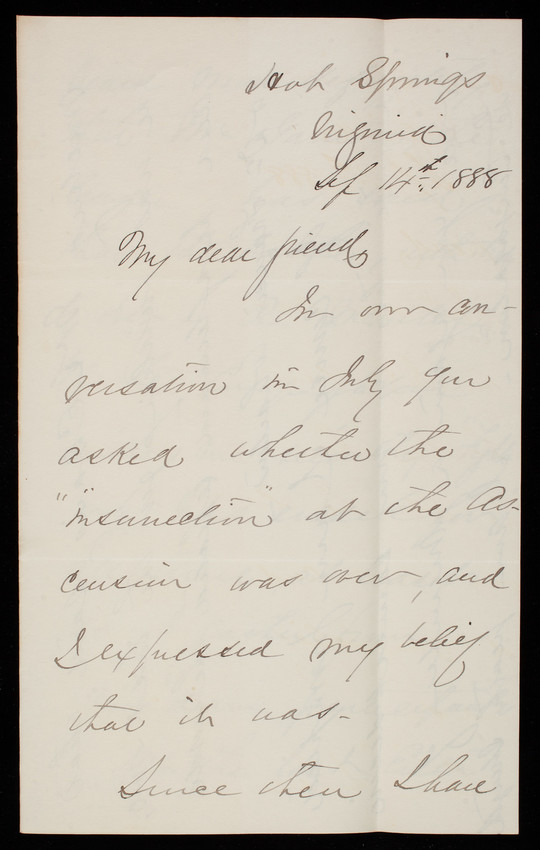 Hot Springs
Virginia
Sep 14th. 1888
My dear friend,
In our con-
versation in July you
asked whether the
"insurrection" at the As-
cension was over, and
I expressed my belief
that it was-
Since then I have